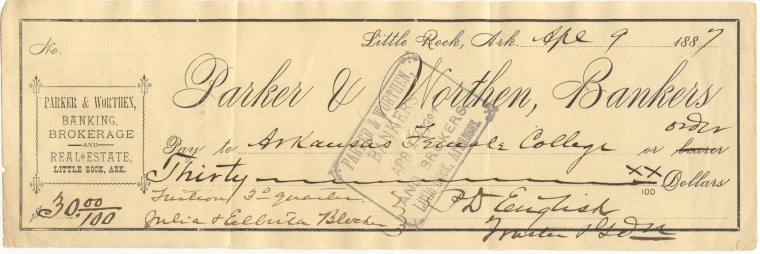 No.
Little Rock, Ark. Apl 9 1887
Parker & Worthen, Bankers
PARKER & WORTHEN,
BANKING,
BROKERAGE
AND
REAL ESTATE,
LITTLE ROCK, ARK.
Pay to Arkansas Female College or bearer order
Thirty XX/100 Dollars
$30.00/100
Tuition 3d quarter
Julia & Blocher
P D English
Trustee
PARKER & WORTHEN,
BANKERS
APR
AND BROKERS
LITTLE ROCK, ARKANSAS.